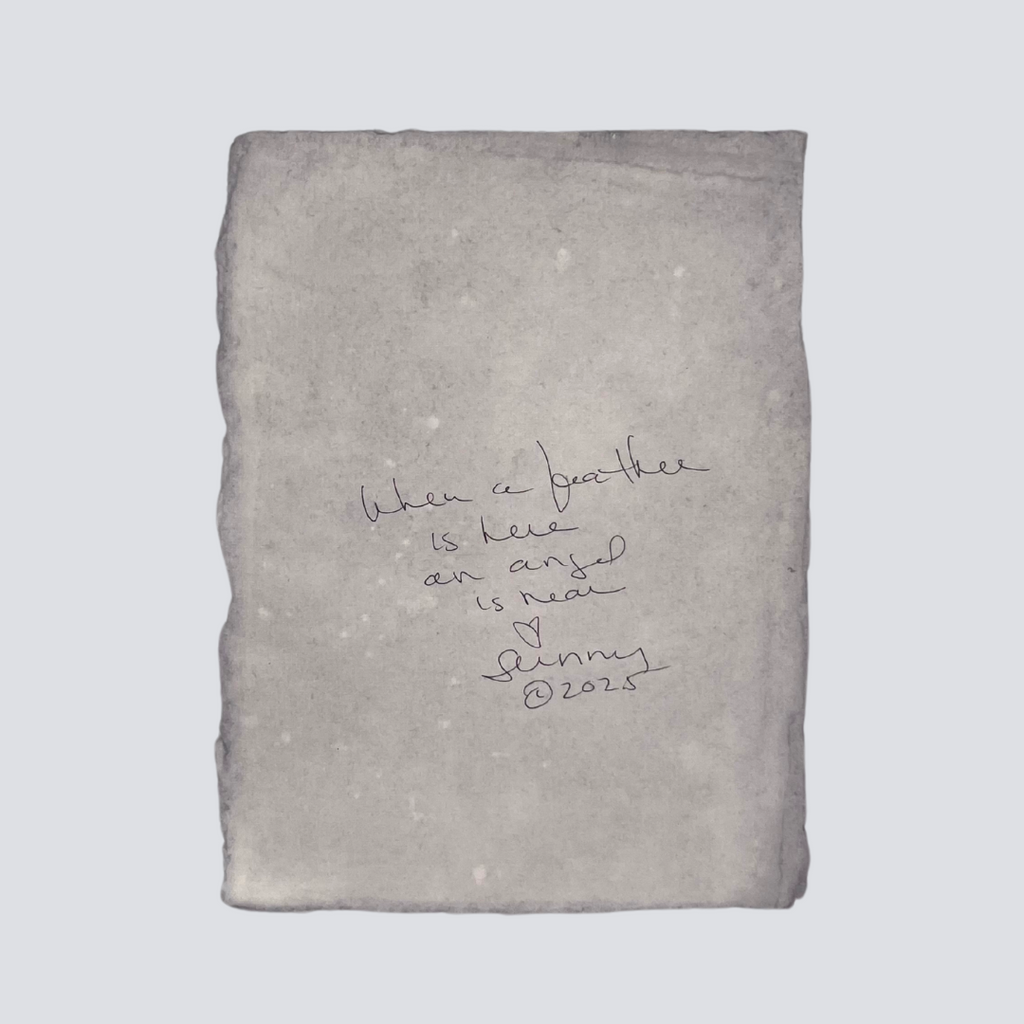 When a feather
is here
an angel
is near
♡
Sunny
©2025